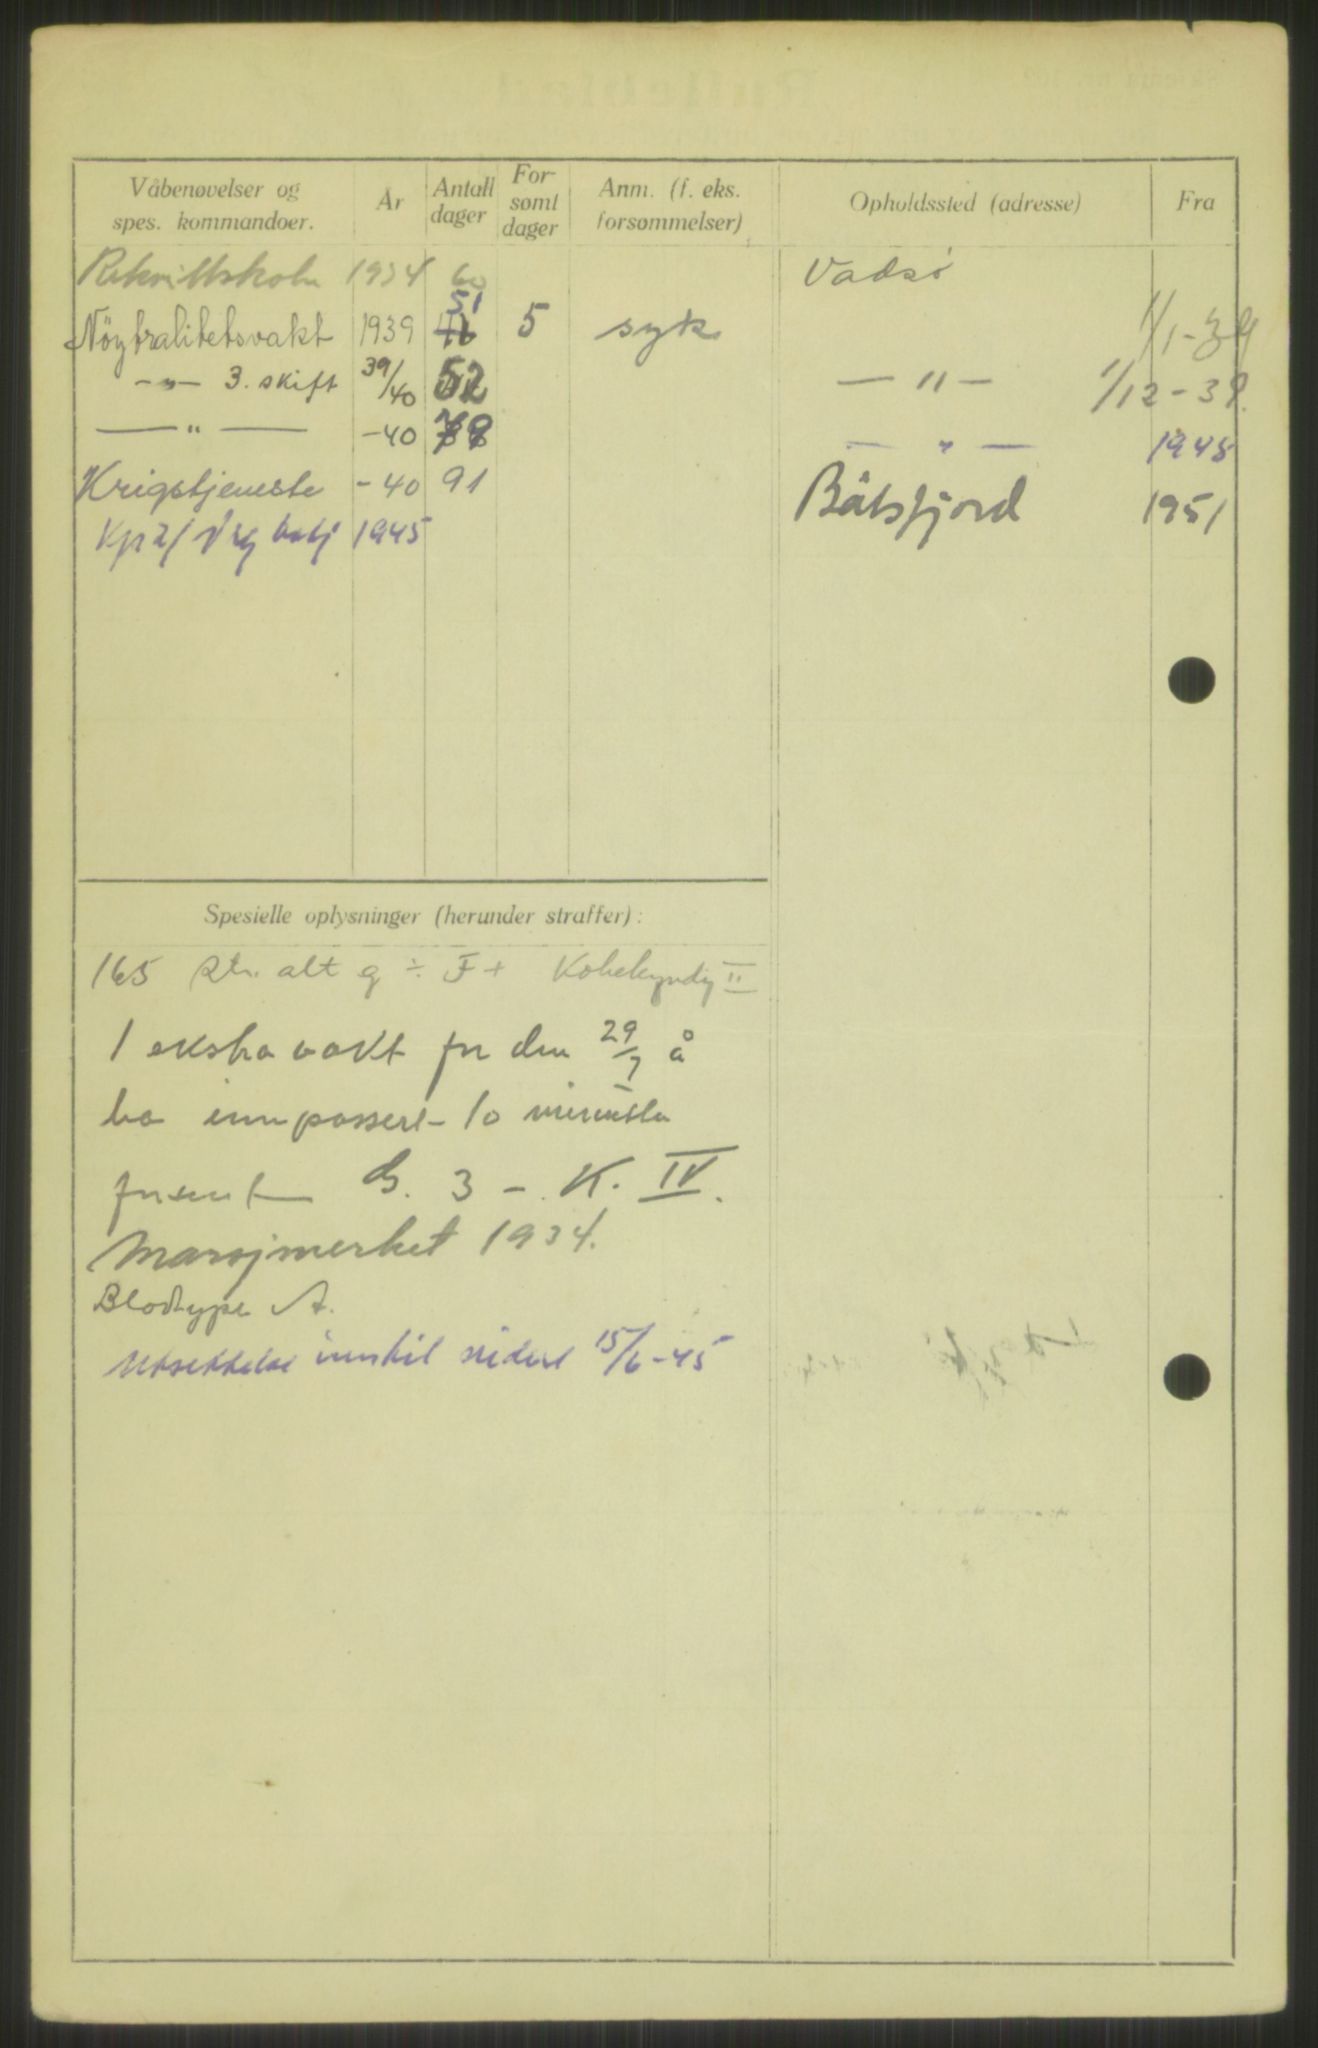 Våbenøvelser og spes. kommandoer. År Antall dager For-sømt dager Anm. (f. eks. forsømmelser) Opholdssted (adresse) Fra
Rekruttskole 1934 60 Vadsø
Nöytralitetsvakt 1939 51 5 syk 1/1-39
-"- 3. skift 39/40 52 -"- 1/12-39.
-"- -40 -"- 1945
Krigstjeneste -40 91 Båtsfjord 1951
Kp 2/ 1945
Spesielle oplysninger (herunder straffer):
165 str. alt g ÷ F + Kokekyndig II
1 ekstra vakt for den 29/7 å
ha innpassert 10 minutter
forsent G. 3 - K. IV.
Marsjmerket 1934.
Blodtype A.
Utsettelse inntil videre 15/6-45